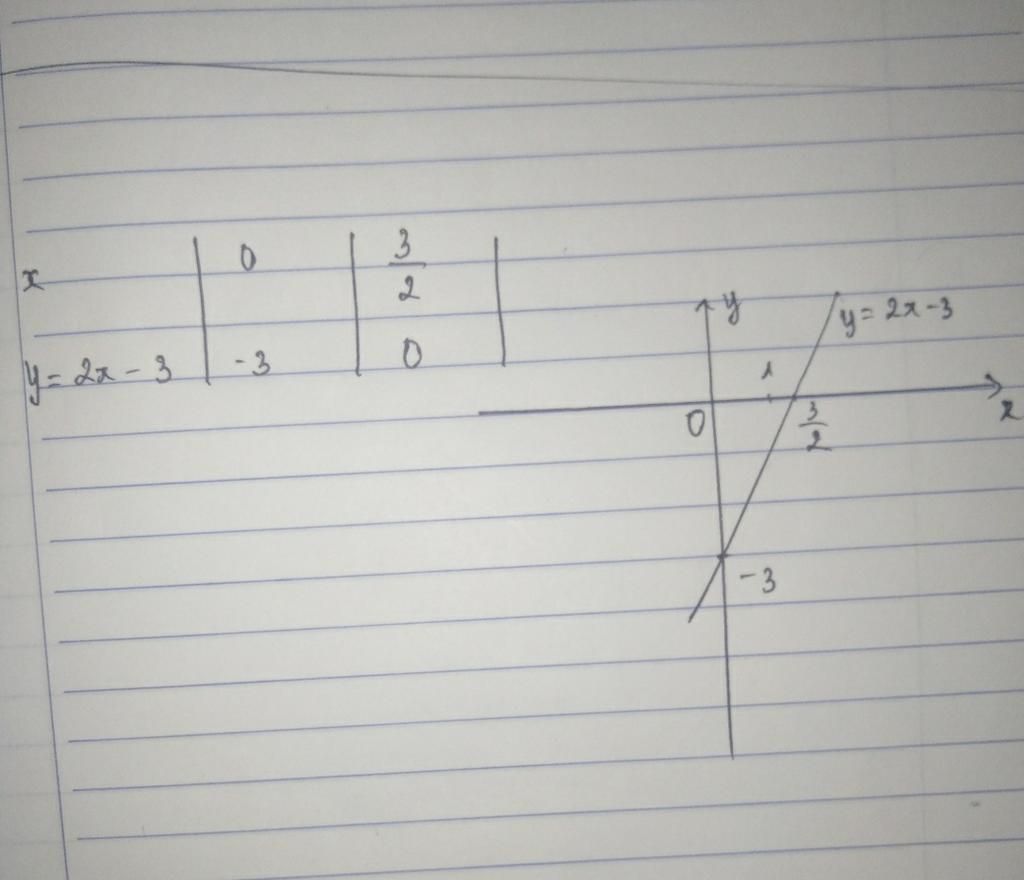 x 0 3/2
y = 2x - 3 -3 0
y
y = 2x - 3
1
0
3/2
x
-3